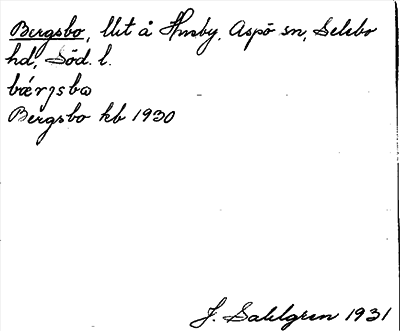 Bergsbo, llit å Husby, Aspö sn, Selebo
hd, Söd. l.
bærjsbω
Bergsbo kb 1930
J. Sahlgren 1931